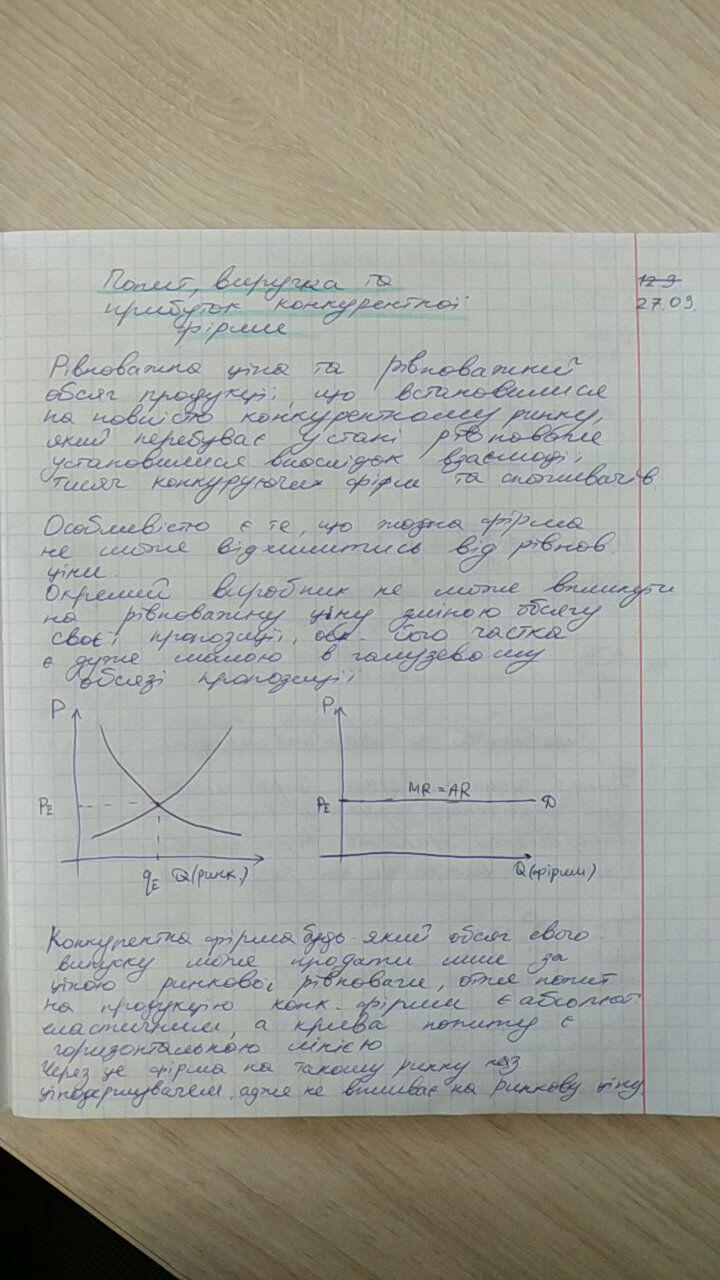 Попит, виручка та
прибуток конкурентної
фірми
12.9
27.09.
Рівноважна ціна та рівноважний
обсяг продукції, що встановилися
на повністю конкурентному ринку,
який перебуває у стані рівноваги
установилися внаслідок взаємодії
тисяч конкуруючих фірм та споживачів.
Особливістю є те, що жодна фірма
не може відхилитись від рівнов.
ціни.
Окремий виробник не може вплинути
на рівноважну ціну зміною обсягу
своєї пропозиції, його частка
є дуже малою в галузевому
обсязі пропозиції
P
PE
qE Q(ринк.)
P
PE
MR = AR
D
Q(фірми)
Конкурентна фірма будь-який обсяг свого
випуску може продати лише за
ціною ринкової рівноваги, отже попит
на продукцію конк. фірми є абсолют.
еластичним, а крива попиту є
горизонтальною лінією
Через це фірма на такому ринку наз.
ціноодержувачем, адже не впливає на ринкову ціну.